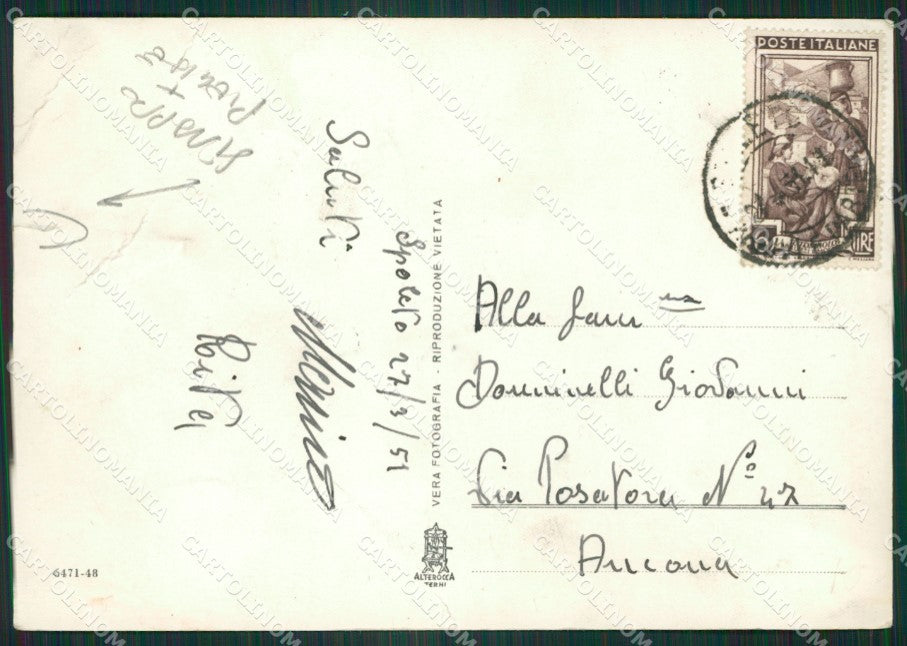 POSTE ITALIANE
LIRE
Spoleto 27/3/51
Saluti
Rita
Alla fam na
Donninelli Giovanni
Via Posatora N° 47
Ancona
VERA FOTOGRAFIA - RIPRODUZIONE VIETATA
ALTEROCCA
TERNI
6471-48
CARTOLINOMANIA